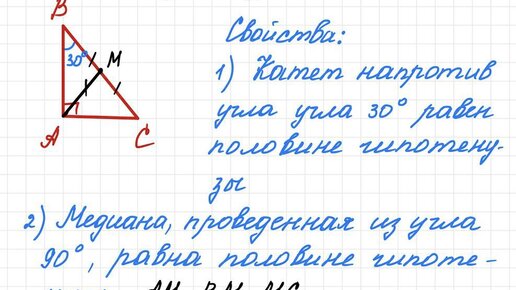 B
30°
M
A
C
Свойства:
1) Катет напротив
угла угла 30° равен
половине гипотену-
зы
2) Медиана, проведенная из угла
90°, равна половине гипоте-